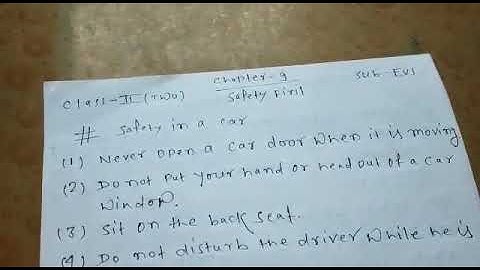 Chapter-9
Class-II (Two) Sub-EVS
Safety First
# Safety in a car
(1) Never open a car door when it is moving
(2) Do not put your hand or head out of a car
window.
(3) Sit on the back seat.
(4) Do not disturb the driver while he is